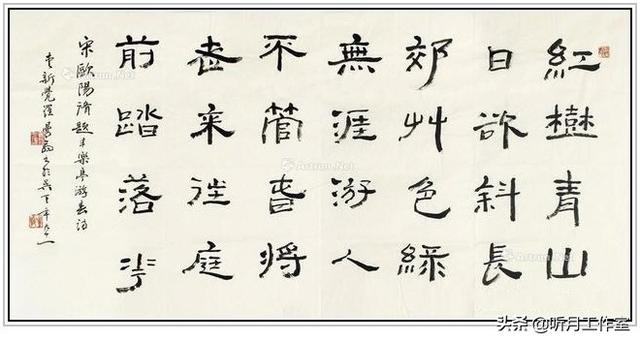 紅樹青山
日欲斜長
郊艸色綠
無涯游人
不管春將
老來往庭
前踏落花
宋歐陽脩題丰樂亭游春詩
愛新覺羅
Artron.Net
头条 @听月工作室